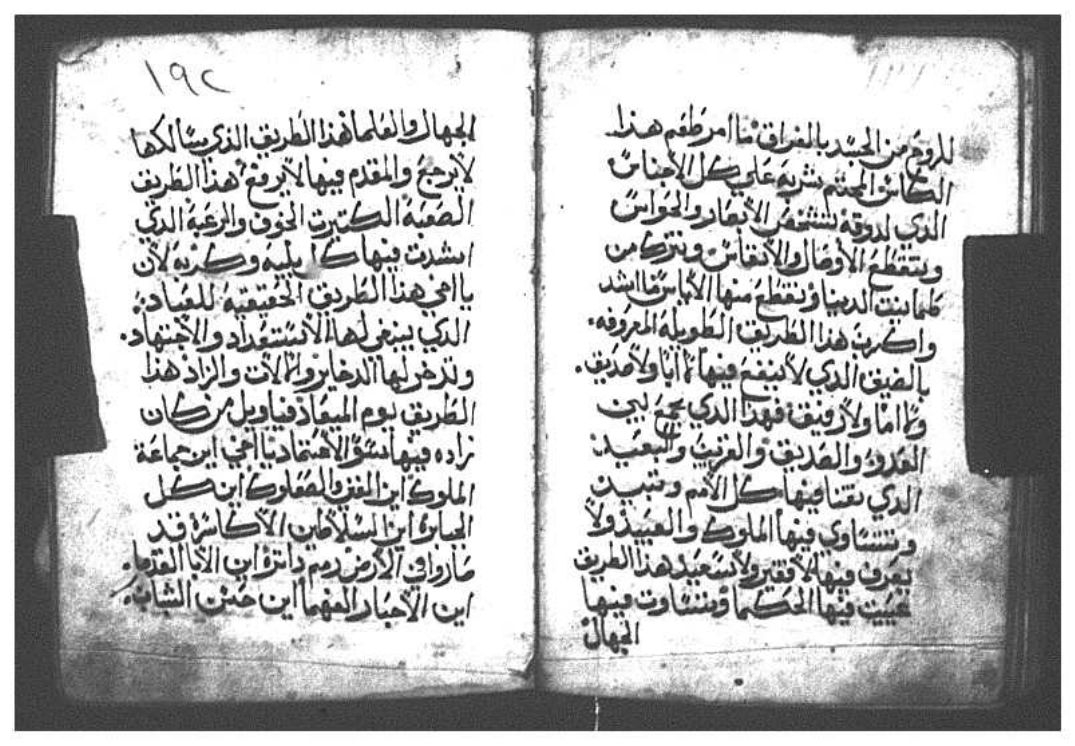 للروح من الجسد بالفراق ماامر طعم هذا
الكاس المحتم شربه علي كل الاجناس
الذي لدوقة تشخص الابصار والحواس
وتتقطع الأوصال والانفاس وتترك من
طمانينت الدنيا وتقطع منها الاياس مااشد
واكرب هذا الطريق الطويله المعروفه.
بالضيق الذي لاينفع فيها لا أبا ولاصديق.
ولا اما ولا رفيق فهذا الذي يجمع بين
العدوو والصديق والقريب والبعيد.
الذي يفنا فيها كل الأمم وتبيد
ويتساوي فيها الملوك والعبيد ولا
يعرف فيها لافقير ولاسعيد هذا الطريق
غيبت فيها الحكما وتساوت فيها
الجهال
١٩٢
الجهال والعلما هذا الطريق الذي سالكها
لايرجع والمقدم فيها لايرفع هذا الطريق
الصعبة الكتيرت الخوف والرعبة الذي
اشدت فيها كل بليه وكربه لأن
يااخي هذا الطريق الحقيقية للعباد.
الذي ينبغي لها الاستعداد والاجتهاد.
وتدخر لها الدخاير والالات والزاد هذا
الطريق يوم الميعاد فياويل من كان
زاده فيها سؤ الاعتماد يااخي اين جماعة
الملوك اين الغني والصعلوك اين كل
الجبابرة اين السلاطين الأكاسرة قد
صاروا في الأرض رمم داثرة اين الابا القدما.
اين الاحبار الفهما اين حسن الشباب.